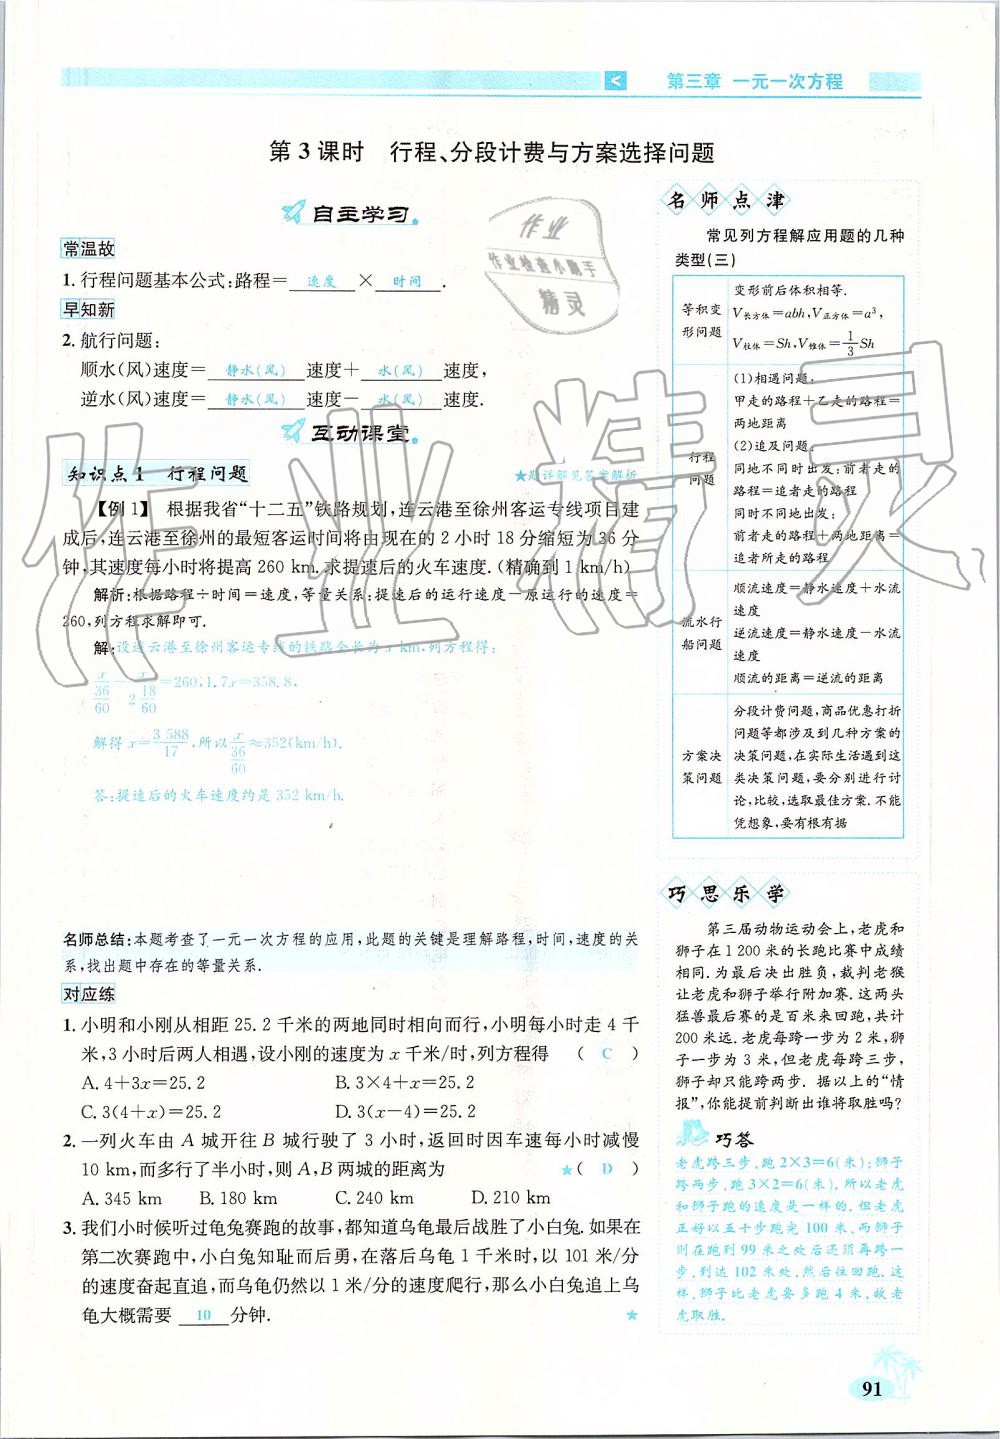 第三章 一元一次方程
第 3 课时 行程、分段计费与方案选择问题
自主学习
常温故
1. 行程问题基本公式:路程= 速度 × 时间 .
早知新
2. 航行问题:
顺水(风)速度= 静水(风) 速度+ 水(风) 速度,
逆水(风)速度= 静水(风) 速度- 水(风) 速度.
互动课堂
知识点 1 行程问题
★题详解见答案解析
【例 1】 根据我省“十二五”铁路规划,连云港至徐州客运专线项目建
成后,连云港至徐州的最短客运时间将由现在的 2 小时 18 分缩短为 36 分
钟,其速度每小时将提高 260 km.求提速后的火车速度.(精确到 1 km/h)
解析:根据路程÷时间=速度,等量关系:提速后的运行速度-原运行的速度=
260,列方程求解即可.
解:设连云港至徐州客运专线的铁路全长为 x km,列方程得:
x/(36/60) - x/(2 18/60) =260,1.7x=358.8,
解得 x=3 588/17,所以 x/(36/60)≈352(km/h).
答:提速后的火车速度约是 352 km/h.
名师总结:本题考查了一元一次方程的应用,此题的关键是理解路程,时间,速度的关
系,找出题中存在的等量关系.
对应练
1. 小明和小刚从相距 25.2 千米的两地同时相向而行,小明每小时走 4 千
米,3 小时后两人相遇,设小刚的速度为 x 千米/时,列方程得 ( C )
A. 4+3x=25.2 B. 3×4+x=25.2
C. 3(4+x)=25.2 D. 3(x-4)=25.2
2. 一列火车由 A 城开往 B 城行驶了 3 小时,返回时因车速每小时减慢
10 km,而多行了半小时,则 A,B 两城的距离为 ★( D )
A. 345 km B. 180 km C. 240 km D. 210 km
3. 我们小时候听过龟兔赛跑的故事,都知道乌龟最后战胜了小白兔.如果在
第二次赛跑中,小白兔知耻而后勇,在落后乌龟 1 千米时,以 101 米/分
的速度奋起直追,而乌龟仍然以 1 米/分的速度爬行,那么小白兔追上乌
龟大概需要 10 分钟. ★
名师点津
常见列方程解应用题的几种
类型(三)
等积变
形问题
变形前后体积相等.
V长方体=abh,V正方体=a³,
V柱体=Sh,V锥体=1/3Sh
行程
问题
(1)相遇问题:
甲走的路程+乙走的路程=
两地距离
(2)追及问题:
同地不同时出发:前者走的
路程=追者走的路程
同时不同地出发:
前者走的路程+两地距离=
追者所走的路程
流水行
船问题
顺流速度=静水速度+水流
速度
逆流速度=静水速度-水流
速度
顺流的距离=逆流的距离
方案决
策问题
分段计费问题,商品优惠打折
问题等都涉及到几种方案的
决策问题,在实际生活遇到这
类决策问题,要分别进行讨
论,比较,选取最佳方案.不能
凭想象,要有根有据
巧思乐学
第三届动物运动会上,老虎和
狮子在 1 200 米的长跑比赛中成绩
相同.为最后决出胜负,裁判老猴
让老虎和狮子举行附加赛.这两头
猛兽最后赛的是百米来回跑,共计
200 米远.老虎每跨一步为 2 米,狮
子一步为 3 米,但老虎每跨三步,
狮子却只能跨两步. 据以上的“情
报”,你能提前判断出谁将取胜吗?
巧答
老虎跨三步,跑 2×3=6(米);狮子
跨两步,跑 3×2=6(米).所以老虎
和狮子跑的速度是一样的.但老虎
正好以五十步跑完 100 米,而狮子
则在跑到 99 米之处后还须再跨一
步,到达 102 米处,然后往回跑.这
样,狮子比老虎要多跑 4 米,故老
虎取胜.
91
作业
作业检查小助手
精灵
作业精灵